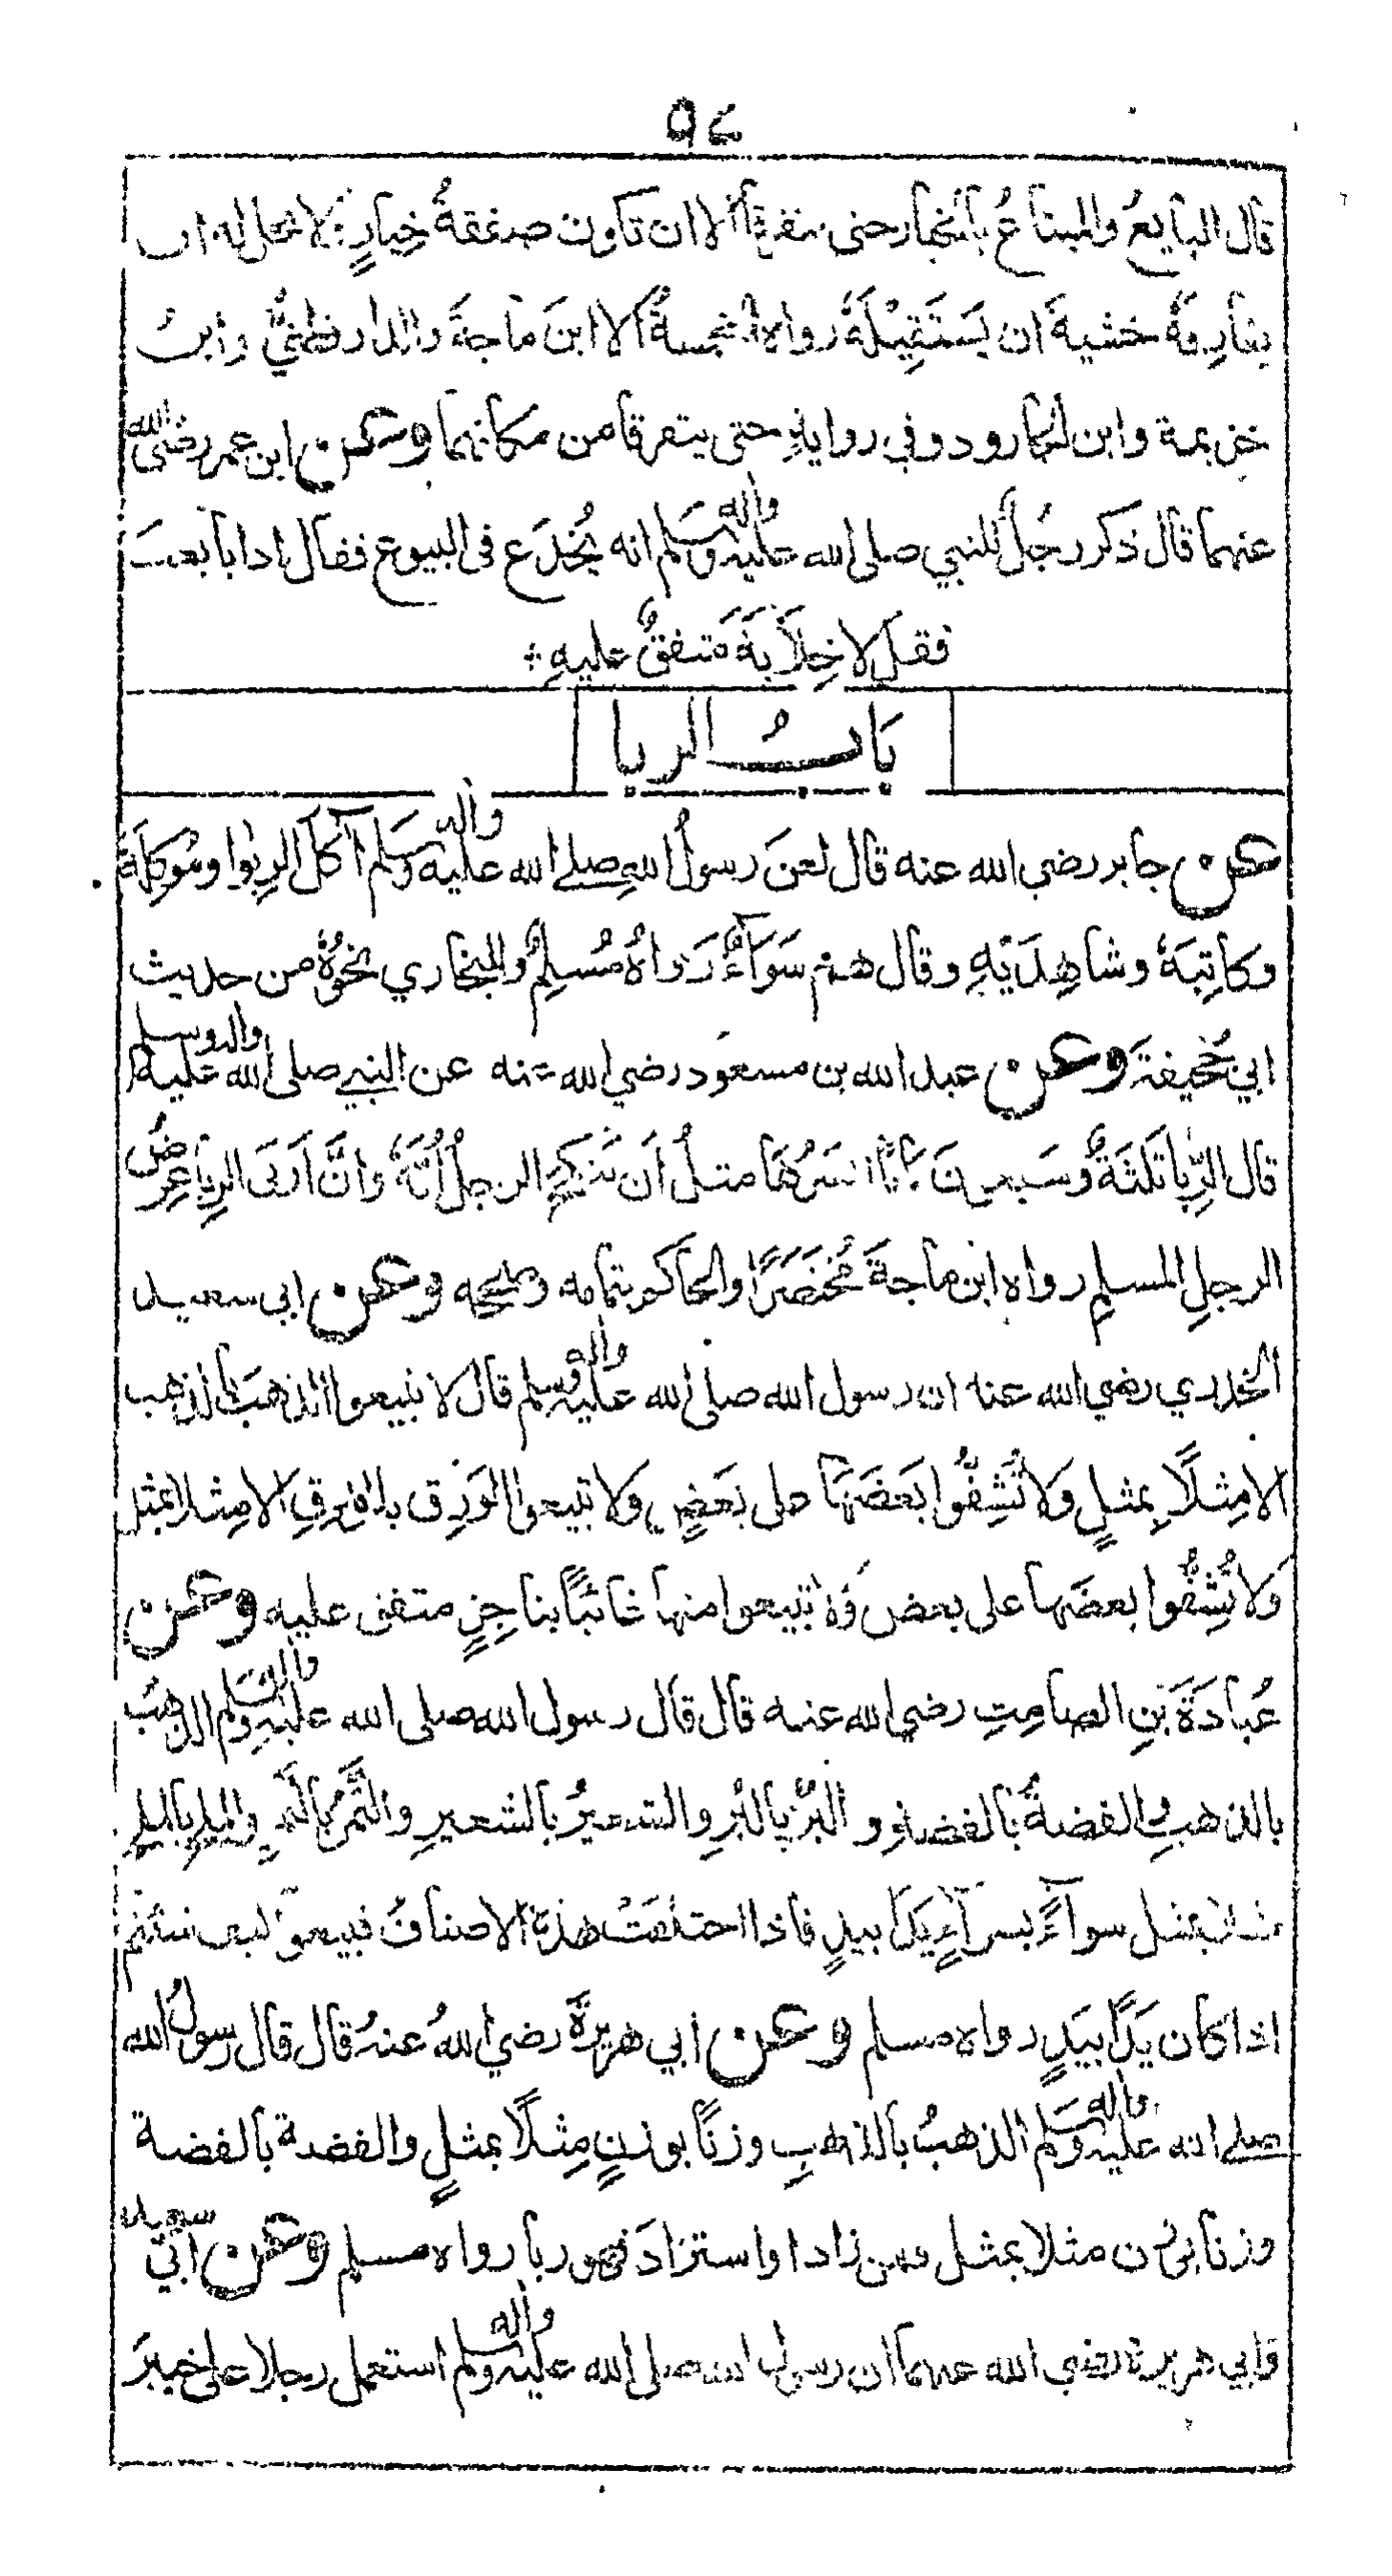 ٩٤
قال البايعُ والمبتاعُ بالخيار حتى يتفرقا الا ان تكون صفقةُ خِيارٍ ولا يحل له ان
يفارِقَهُ خشيةَ ان يَسْتَقِيْلَهُ رواه الخمسةُ الا ابنَ ماجةَ والدارقطنيُّ وابنُ
خزيمة وابن الجارود وفي روايةٍ حتى يتفرقا من مكانهما وعن ابن عمر رضى الله
عنهما قال ذكر رجُلٌ للنبي صلى الله عليه واله وسلم انه يُخْدَع فى البيوع فقال اذا بايعتَ
فقل لا خِلَابَةَ متفقٌ عليهِ
بَابُ الربا
عن جابر رضي الله عنه قال لعنَ رسولُ اللهِ صلے الله عليه واله وسلم آكلَ الربوا ومُوكِلَهُ
وكاتِبَهُ وشاهِدَيْهِ وقال هم سَوَآءٌ رَوَاهُ مُسلِمٌ وللبخاري نحوُهُ من حديث
ابي جُحَيفةَ وعن عبد الله بن مسعود رضي الله عنه عن النبي صلى الله عليه واله وسلم
قال الرِّبا ثلثةٌ وسَبعونَ بابًا ايسَرُهَا مثلُ اَن يَنكِحَ الرجلُ اُمَّهُ وانَّ اَربَى الرِبَا عِرضُ
الرجلِ المسلمِ رواه ابن ماجةَ مُختصَرًا والحاكم بتمامه وصححه وعن ابي سعيد
الخدري رضي الله عنه ان رسول الله صلى الله عليه واله وسلم قال لا تبيعوا الذهبَ بالذهب
الا مِثلًا بمثلٍ ولا تُشِفُّوا بعضَهَا على بَعضٍ ولا تبيعوا الوَرِق بالوَرِقِ الا مِثلا بمثل
ولا تُشِفُّوا بعضَها على بعض ولا تبيعوا منها غائبًا بناجِزٍ متفق عليه وعن
عُبادَةَ بنِ الصامِتِ رضي الله عنه قال قال رسول الله صلى الله عليه واله وسلم الذهبُ
بالذهبِ والفضةُ بالفضةِ والبُرُّ بالبُرِ والشعيرُ بالشعيرِ والتَّمرُ بالتمرِ والملحُ بالملحِ
مثلا بمثل سوآءً بسوآءٍ يدًا بيدٍ فاذا اختلفتْ هذه الاصنافُ فبيعوا كيف شئتم
اذا كان يدًا بيَدٍ رواه مسلم وعن ابي هريرةَ رضي اللهُ عنهُ قال قال رسولُ الله
صلے الله عليه واله وسلم الذهبُ بالذهبِ وزنًا بوزنٍ مِثلًا بمثلٍ والفضة بالفضة
وزنا بوزن مثلا بمثل فمن زاد او استزادَ فهو ربا رواه مسلم وعن ابي سعيد
وابي هريرة رضي الله عنهما ان رسول الله صلى الله عليه واله وسلم استعمل رجلا على خيبرَ